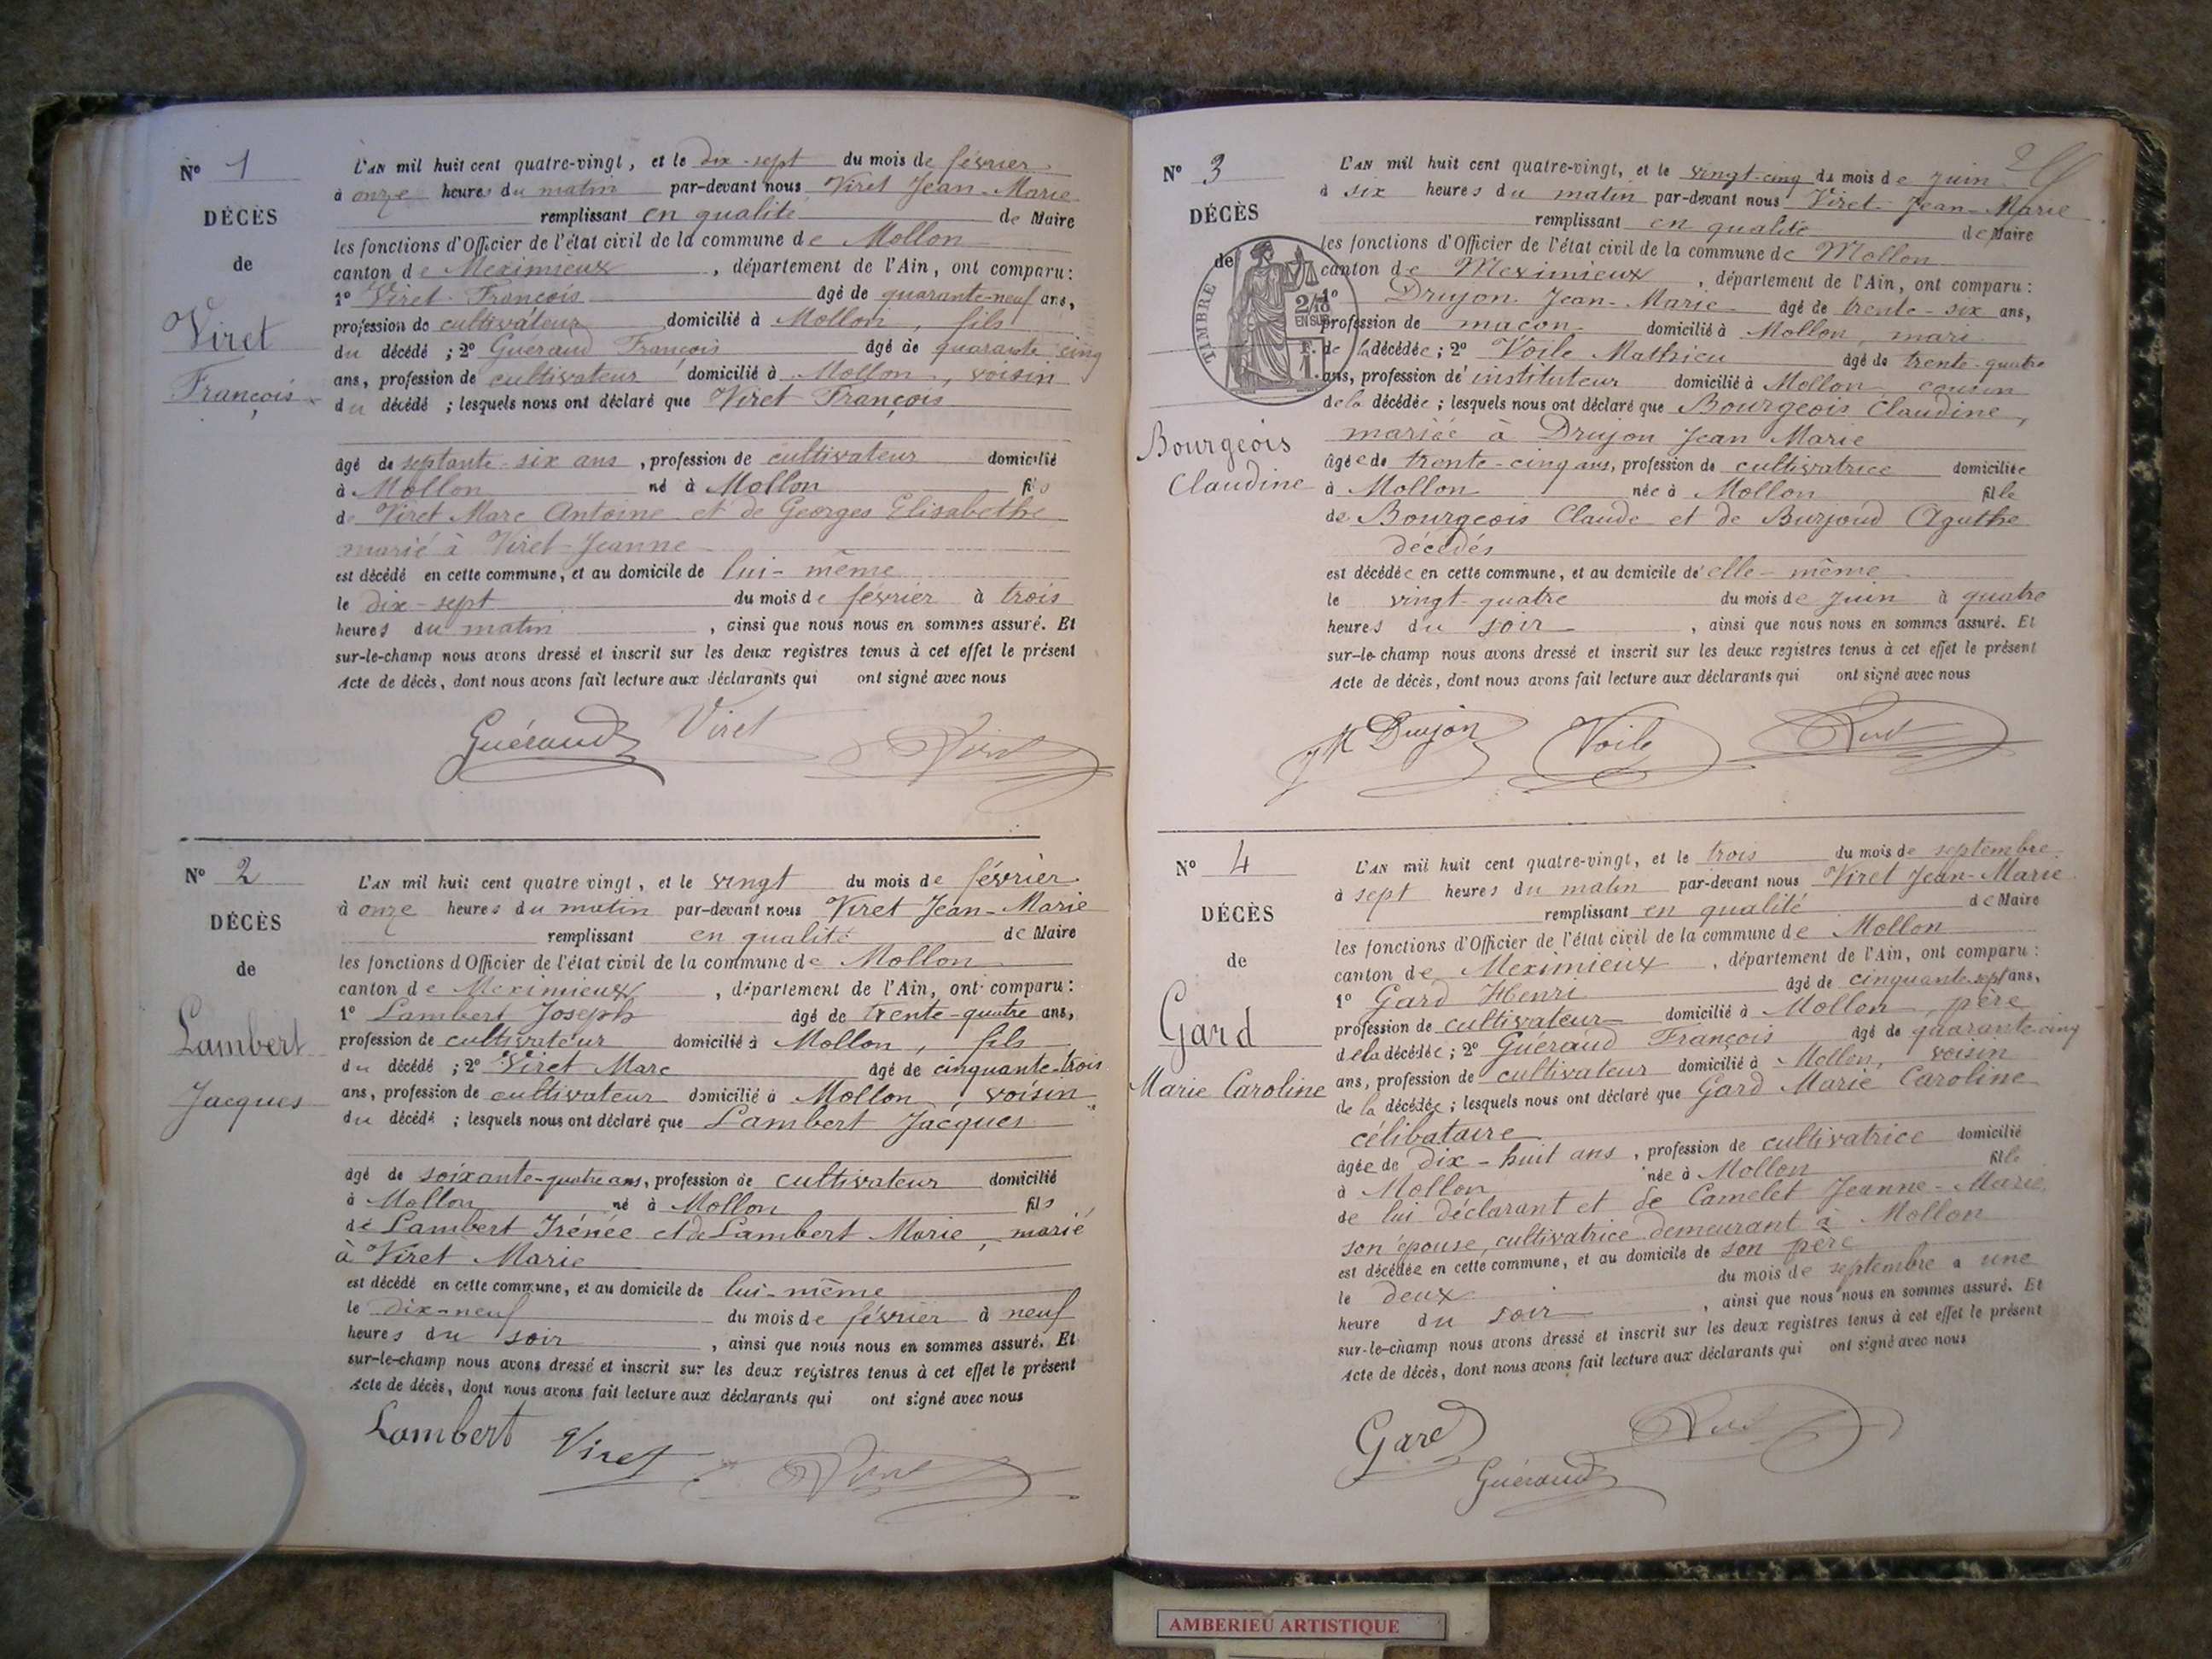 N° 1
DÉCÈS
de
Viret
François
L'AN mil huit cent quatre-vingt, et le dix-sept du mois de février
à onze heures du matin par-devant nous Viret Jean-Marie
remplissant en qualité de Maire
les fonctions d'Officier de l'état civil de la commune de Mollon
canton de Meximieux, département de l'Ain, ont comparu:
1° Viret François âgé de quarante-neuf ans,
profession de cultivateur domicilié à Mollon, fils
du décédé ; 2° Gueraud François âgé de quarante cinq
ans, profession de cultivateur domicilié à Mollon, voisin
du décédé ; lesquels nous ont déclaré que Viret François
âgé de septante-six ans, profession de cultivateur domicilié
à Mollon né à Mollon fils
de Viret Marc Antoine et de Georges Elisabethe
marié à Viret-Jeanne
est décédé en cette commune, et au domicile de lui-même
le dix-sept du mois de février à trois
heures du matin, ainsi que nous nous en sommes assuré. Et
sur-le-champ nous avons dressé et inscrit sur les deux registres tenus à cet effet le présent
Acte de décès, dont nous avons fait lecture aux déclarants qui ont signé avec nous
Guéraud Viret Viret
N° 2
DÉCÈS
de
Lambert
Jacques
L'AN mil huit cent quatre vingt, et le vingt du mois de février
à onze heures du matin par-devant nous Viret Jean-Marie
remplissant en qualité de Maire
les fonctions d'Officier de l'état civil de la commune de Mollon
canton de Meximieux, département de l'Ain, ont comparu:
1° Lambert Joseph âgé de trente-quatre ans,
profession de cultivateur domicilié à Mollon, fils
du décédé ; 2° Viret Marc âgé de cinquante-trois
ans, profession de cultivateur domicilié à Mollon, voisin
du décédé ; lesquels nous ont déclaré que Lambert Jacques
âgé de soixante-quatre ans, profession de cultivateur domicilié
à Mollon né à Mollon fils
de Lambert Irénée et de Lambert Marie, marié
à Viret Marie
est décédé en cette commune, et au domicile de lui-même
le dix-neuf du mois de février à neuf
heures du soir, ainsi que nous nous en sommes assuré. Et
sur-le-champ nous avons dressé et inscrit sur les deux registres tenus à cet effet le présent
Acte de décès, dont nous avons fait lecture aux déclarants qui ont signé avec nous
Lambert Viret Viret
N° 3
DÉCÈS
de
TIMBRE
2/10
EN SUS
Bourgeois
Claudine
L'AN mil huit cent quatre-vingt, et le vingt-cinq du mois de juin
à six heures du matin par-devant nous Viret-Jean-Marie
remplissant en qualité de Maire
les fonctions d'Officier de l'état civil de la commune de Mollon
canton de Meximieux, département de l'Ain, ont comparu:
1° Drujon Jean-Marie âgé de trente-six ans,
profession de maçon domicilié à Mollon, mari
de la décédée ; 2° Voile Mathieu âgé de trente-quatre
ans, profession de instituteur domicilié à Mollon cousin
de la décédée ; lesquels nous ont déclaré que Bourgeois Claudine,
mariée à Drujon Jean Marie
âgée de trente-cinq ans, profession de cultivatrice domiciliée
à Mollon née à Mollon fille
de Bourgeois Claude et de Burjoud Agathe
décédés
est décédée en cette commune, et au domicile de elle-même
le vingt-quatre du mois de juin à quatre
heures du soir, ainsi que nous nous en sommes assuré. Et
sur-le-champ nous avons dressé et inscrit sur les deux registres tenus à cet effet le présent
Acte de décès, dont nous avons fait lecture aux déclarants qui ont signé avec nous
JM Drujon Voile Viret
N° 4
DÉCÈS
de
Gard
Marie Caroline
L'AN mil huit cent quatre-vingt, et le trois du mois de septembre
à sept heures du matin par-devant nous Viret Jean-Marie
remplissant en qualité de Maire
les fonctions d'Officier de l'état civil de la commune de Mollon
canton de Meximieux, département de l'Ain, ont comparu:
1° Gard Henri âgé de cinquante-sept ans,
profession de cultivateur domicilié à Mollon, père
de la décédée ; 2° Guéraud François âgé de quarante-cinq
ans, profession de cultivateur domicilié à Mollon, voisin
de la décédée ; lesquels nous ont déclaré que Gard Marie Caroline
célibataire
âgée de dix-huit ans, profession de cultivatrice domicilié
à Mollon née à Mollon fille
de lui déclarant et de Camelet Jeanne-Marie
son épouse, cultivatrice demeurant à Mollon
est décédée en cette commune, et au domicile de son père
le deux du mois de septembre à une
heure du soir, ainsi que nous nous en sommes assuré. Et
sur-le-champ nous avons dressé et inscrit sur les deux registres tenus à cet effet le présent
Acte de décès, dont nous avons fait lecture aux déclarants qui ont signé avec nous
Gard Viret
Guéraud
AMBERIEU ARTISTIQUE